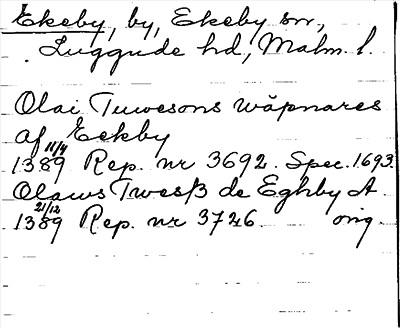 Ekeby, by, Ekeby sn,
Luggude hd, Malm. l.
Olai Tuwesons wäpnares
af Eekby
11/4
1389 Rep. nr 3692. Spec. 1693.
Olaws Twesß de Eghby A
21/12
1389 Rep. nr 3726. orig.